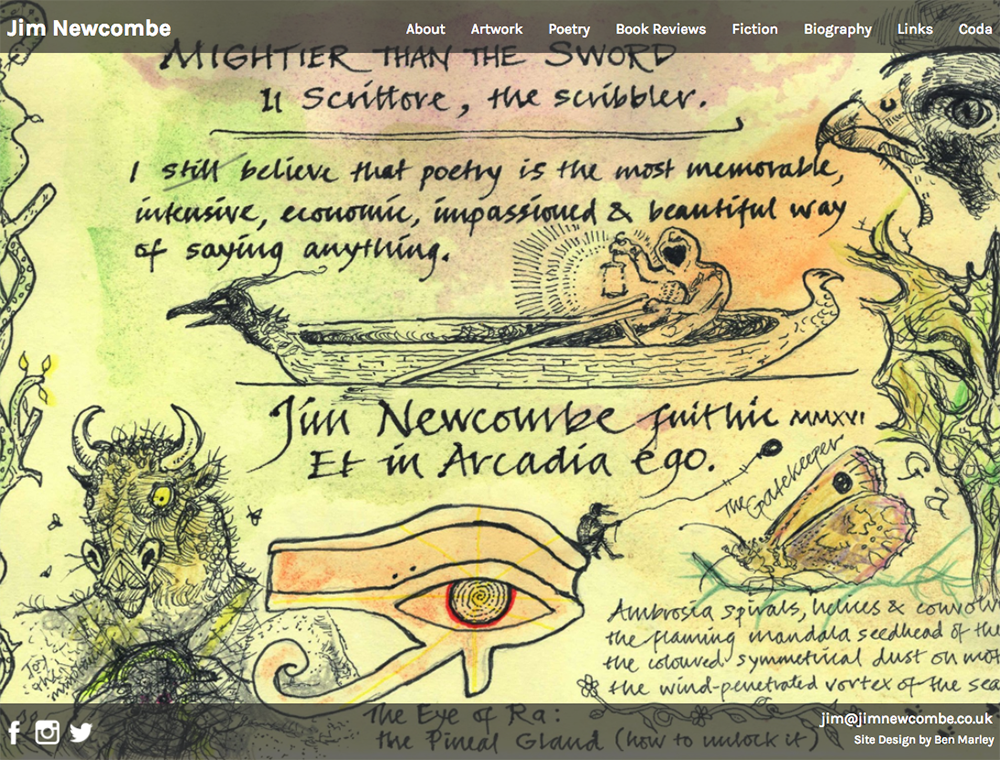 Jim Newcombe
About Artwork Poetry Book Reviews Fiction Biography Links Coda
MIGHTIER THAN THE SWORD
Il Scrittore, the scribbler.
I still believe that poetry is the most memorable,
intensive, economic, impassioned & beautiful way
of saying anything.
Jim Newcombe fuithic MMXVI
Et in Arcadia ego.
The Gatekeeper
Ambrosia spirals, helices & convolv
the flaming mandala seedhead of the
the coloured symmetrical dust on mot
the wind-penetrated vortex of the sea
The Eye of Ra:
the Pineal Gland (how to unlock it)
jim@jimnewcombe.co.uk
Site Design by Ben Marley